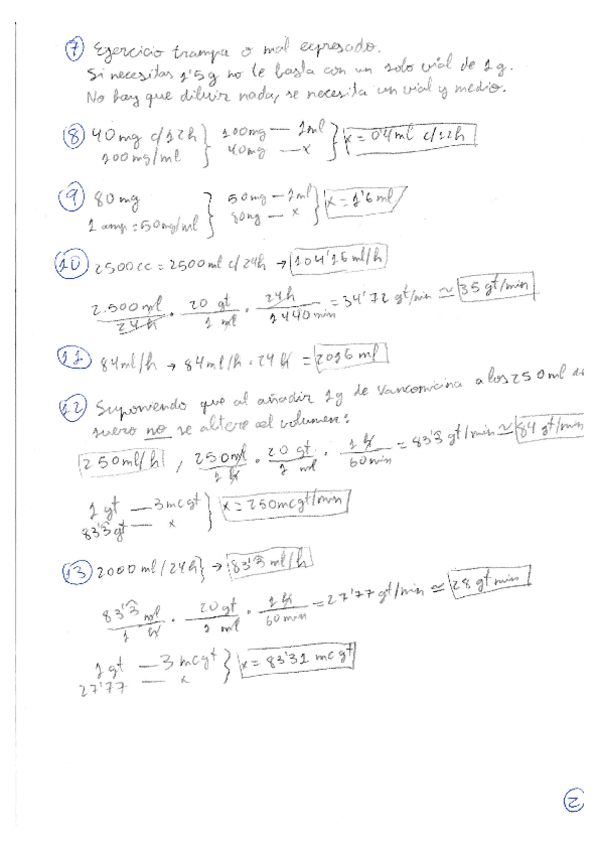 7 Ejercicio trampa o mal expresado.
Si necesitas 1'5g no te basta con un solo vial de 1g.
No hay que diluir nada, se necesita un vial y medio.
8 40mg c/12h } 100mg — 1ml } x = 0'4ml c/12h
100mg/ml } 40mg — x
9 80mg } 50mg — 1ml } x = 1'6ml
1 amp = 50mg/ml } 80mg — x
10 2500cc = 2500ml c/24h → 104'16ml/h
2.500ml/24h · 20 gt/1 ml · 24h/1440min = 34'72 gt/min ≃ 35 gt/min
11 84ml/h → 84ml/h · 24h = 2016ml
12 Suponiendo que al añadir 1g de Vancomicina a los 250ml de
suero no se altere el volumen:
250ml/h , 250ml/1h · 20 gt/1 ml · 1h/60min = 83'3 gt/min ≃ 84 gt/min
1 gt — 3mcgt } x = 250mcgt/min
83'3gt — x
13 2000ml/24h } → 83'3ml/h
83'3 ml/1 h · 20gt/1 ml · 1h/60min = 27'77 gt/min ≃ 28 gt min
1 gt — 3mcgt } x = 83'31 mcgt
27'77 — x
2